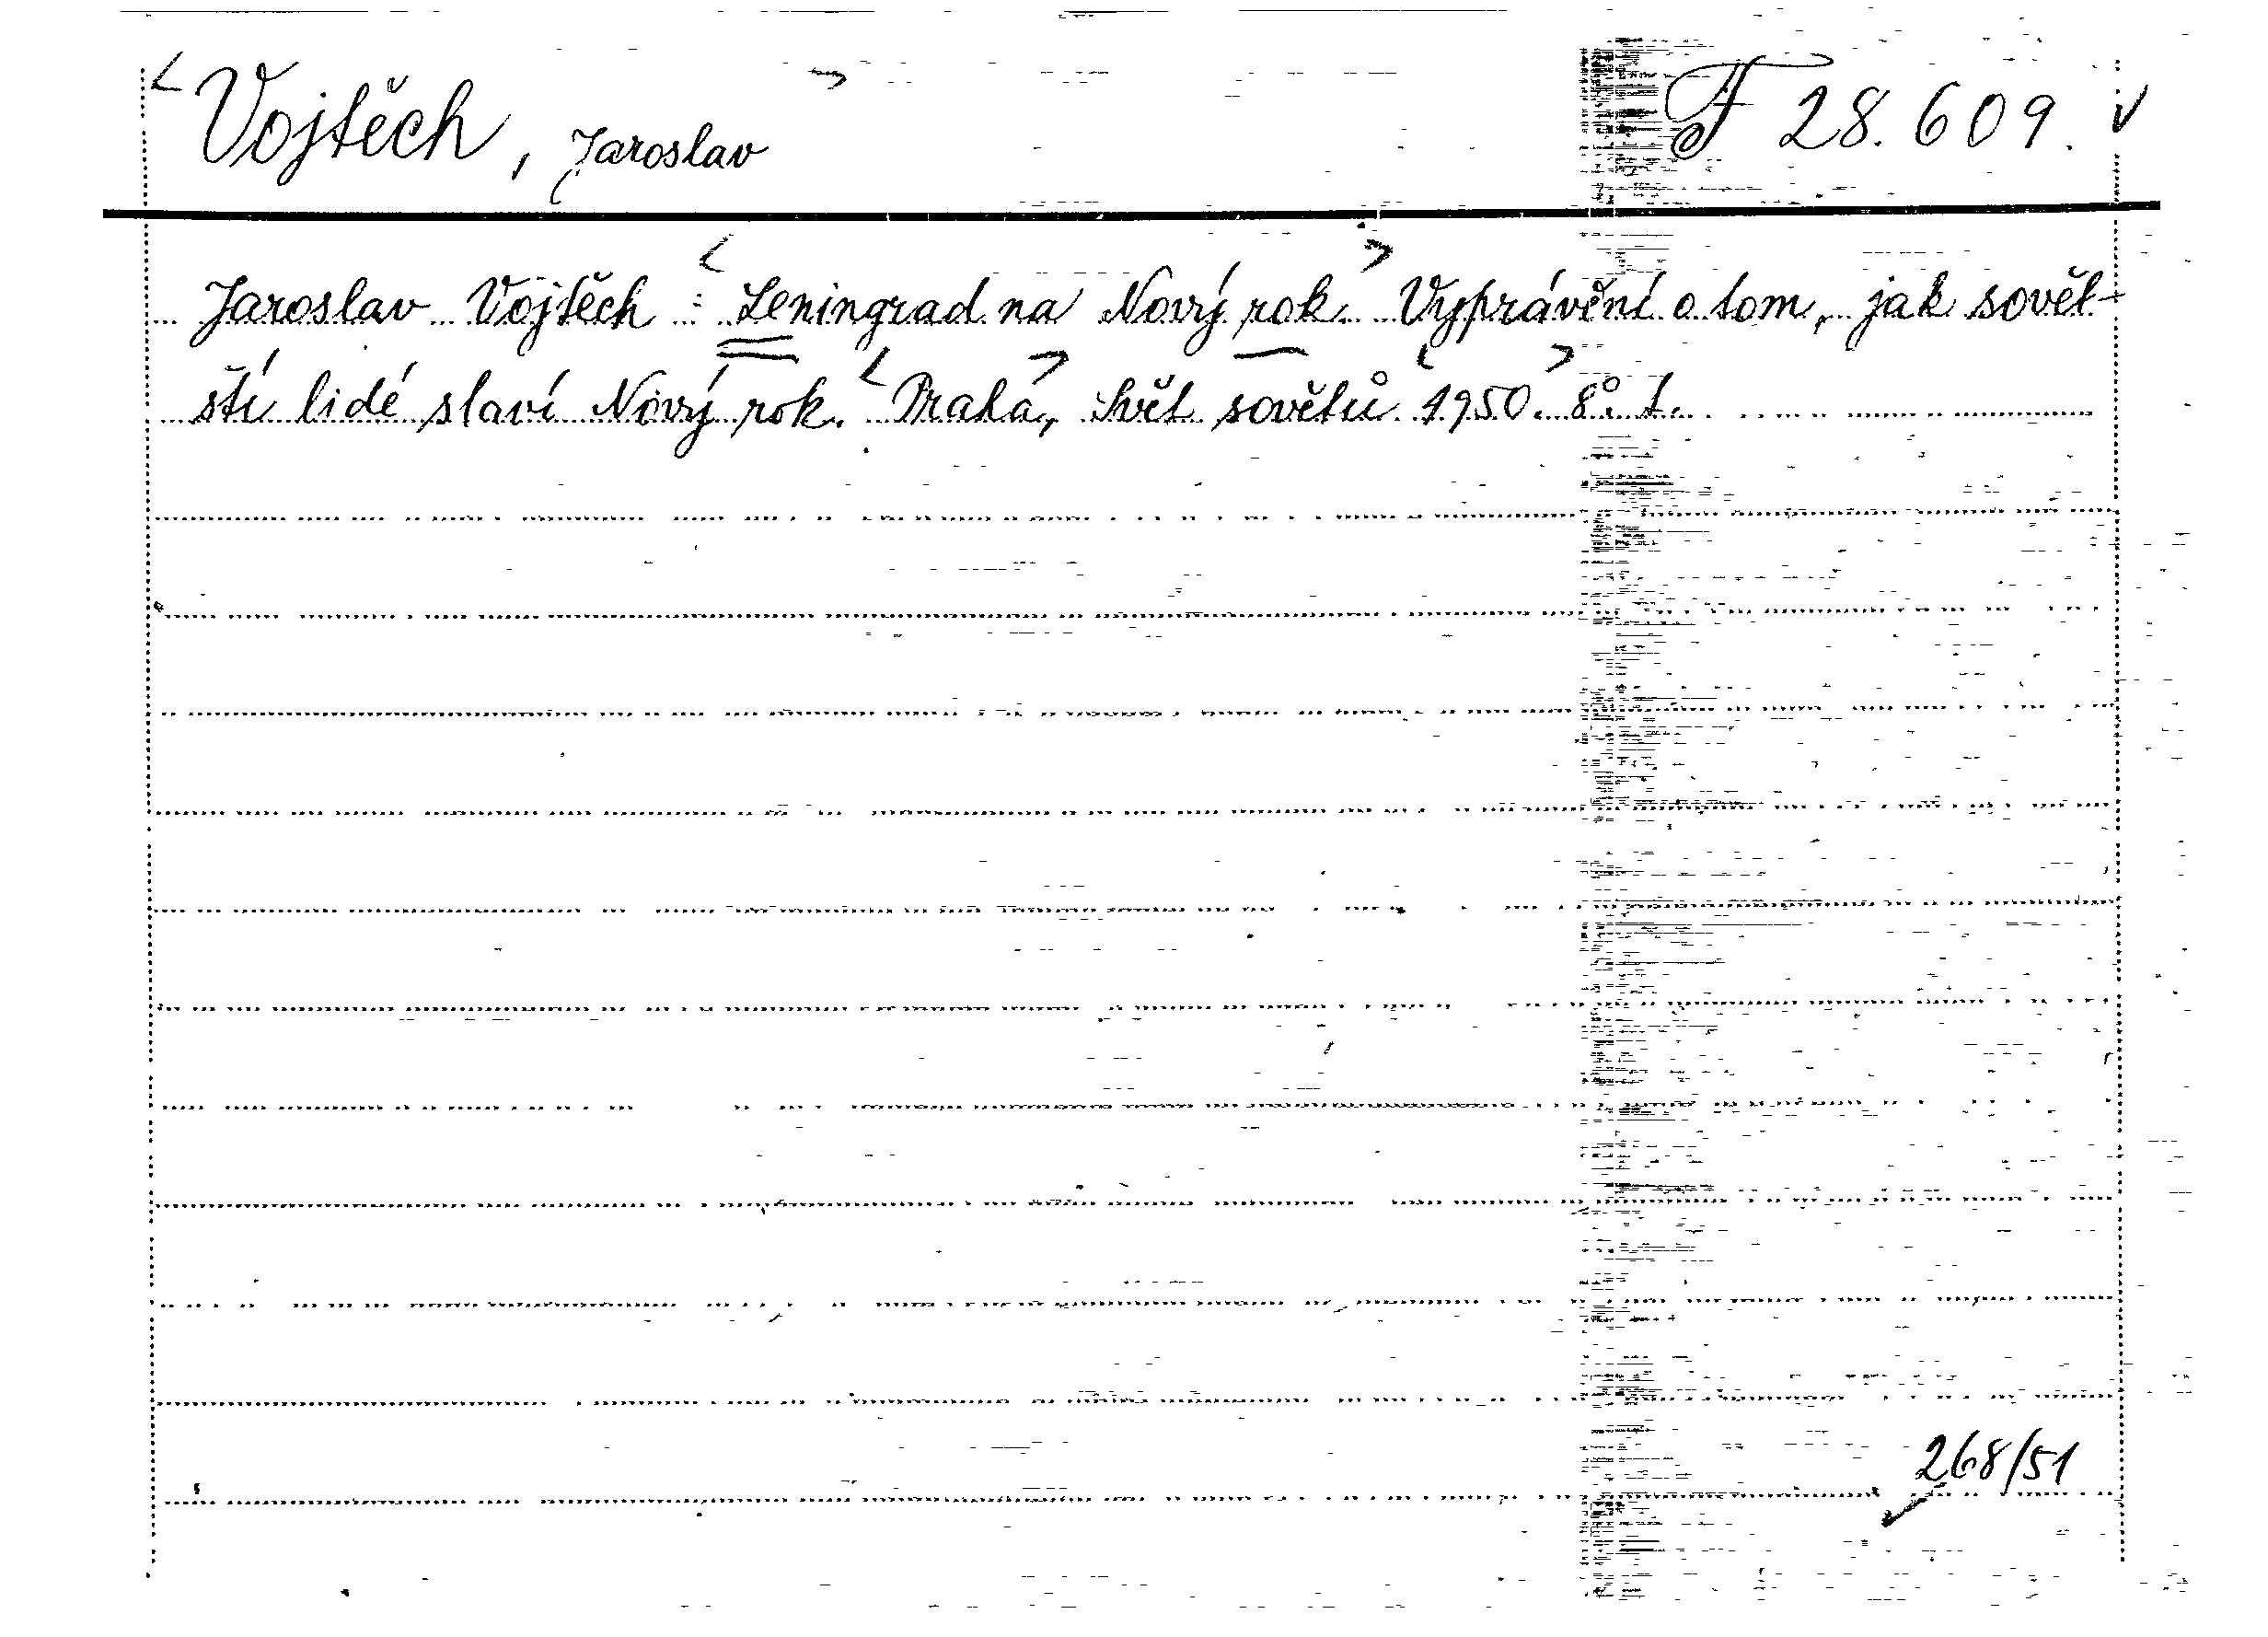 Vojtěch, Jaroslav
F 28.609.
Jaroslav Vojtěch : Leningrad na Nový rok. Vyprávění o tom, jak sovět-
ští lidé slaví Nový rok. Praha, Svět sovětů 1950. 8°. 1.
268/51